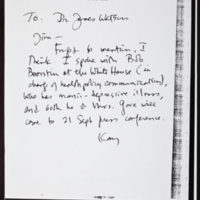 To: Dr. James Watson
Jim –
Forgot to mention, I
think I spoke with Bob
Boorstin at the White House (in
charge of health policy communication),
who has manic-depressive illness,
and both he & Mrs. Gore will
come to 21 Sept press conference.
Kay